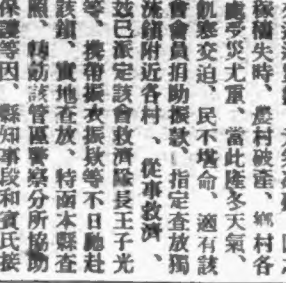 稼穡失時、農村破產、鄉村各
災尤重、當此隆冬天氣、
飢寒交迫、民不堪命、適有該
會會員捐助振款、指定查放獨
流鎭附近各村、從事救濟、
茲已派定該會救濟隊長王子光
等、携帶振衣振欵等不日馳赴
該鎭、實地查放、特函本縣查
照、轉飭該管區警察分所協助
保護等因、縣知事段和賓氏接